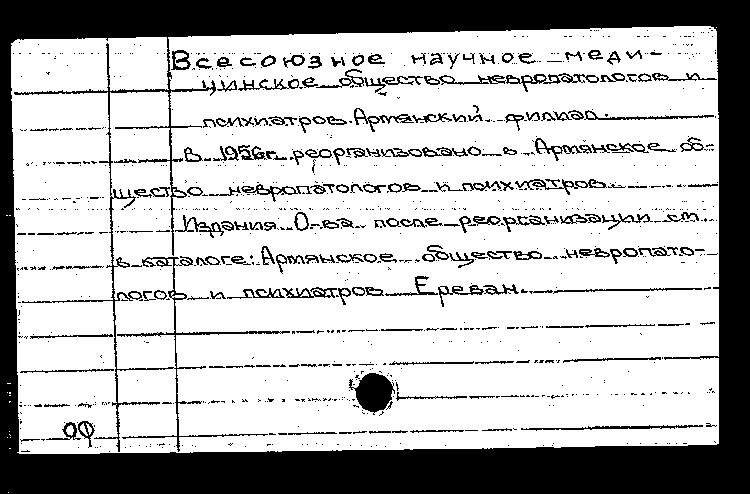 Всесоюзное научное меди-
цинское общество невропатологов и
психиатров. Армянский филиал.
В 1956г. реорганизовано в Армянское об-
щество невропатологов и психиатров.
Издания О-ва после реорганизации см.
в каталоге: Армянское общество невропато-
логов и психиатров Ереван.
оф